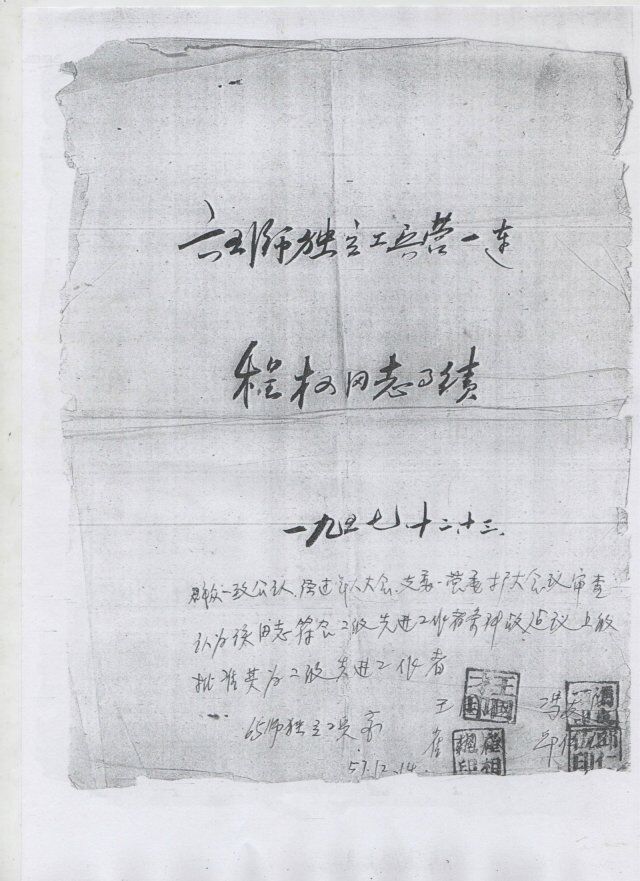 六五师独立工兵营一连
程权同志事绩
一九五七、十二、十三、
群众一致公认、经过军人大会、支委、营党委扩大会议审查
认为该同志符合二级先进工作者条件故建议上级
批准其为二级先进工作者
65师独立工兵营
57.12.14
王
冯
崔